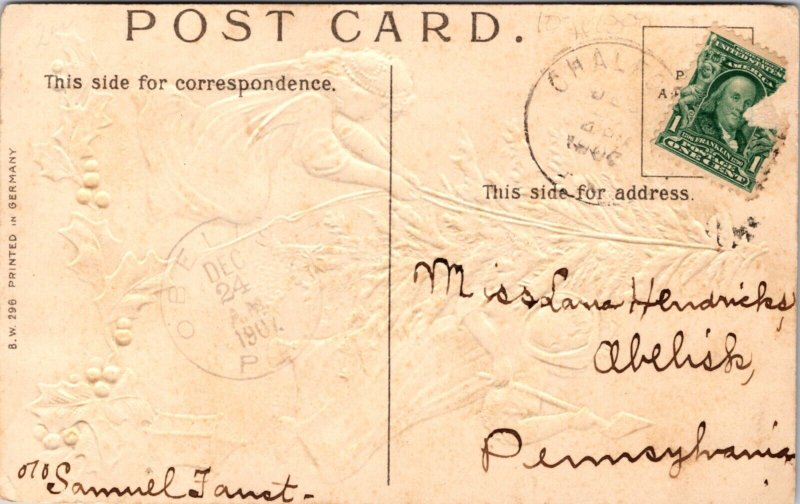 POST CARD.
This side for correspondence.
This side for address.
UNITED STATES
AMERICA
FRANKLIN
1 ONE CENT 1
CHAL
1906
OBEL
DEC
24
A.M.
1907
P
B.W. 296 PRINTED IN GERMANY
Miss Lana Hendricks,
Obelisk,
Pennsylvania
c/o Samuel Faust-